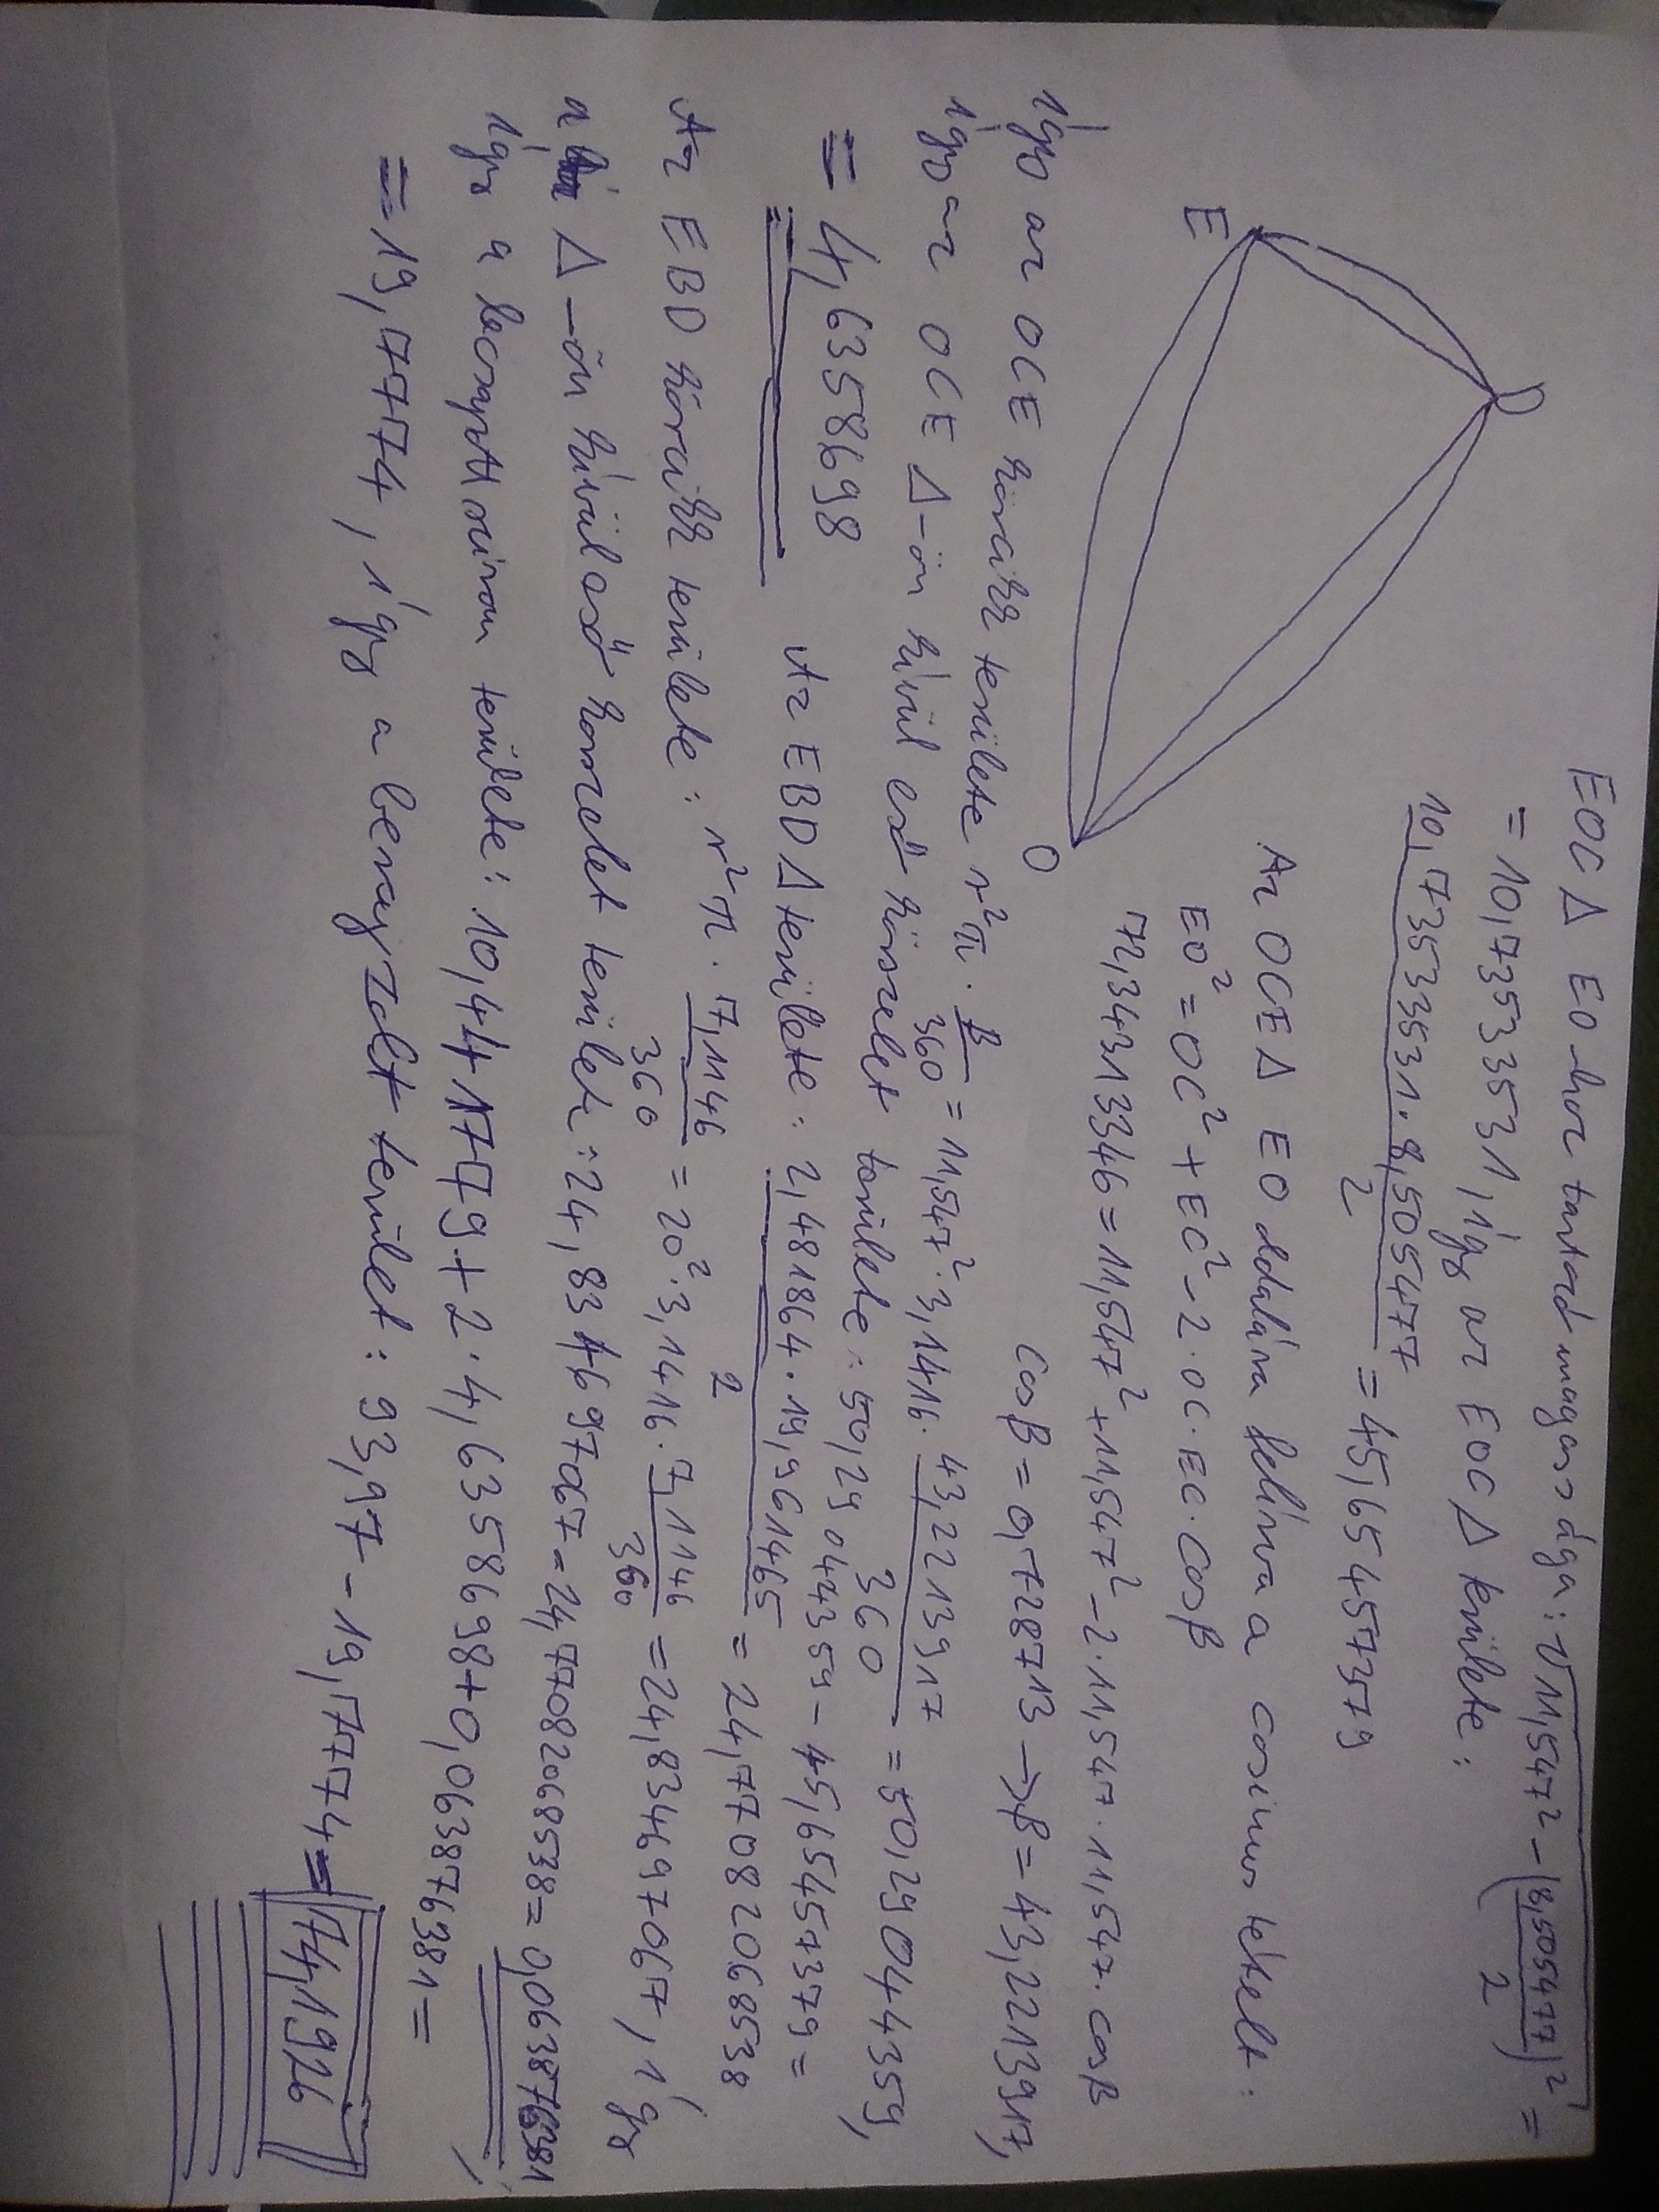 EOC Δ EO-hoz tartozó magassága: √11,547² - (8,5054777/2)² =
= 10,73533531, így az EOC Δ területe:
10,73533531 · 8,5054777 / 2 = 45,654545737379
Az OCE Δ EO oldalára felírva a cosinus tételt:
EO² = OC² + EC² - 2 · OC · EC · cosβ
72,34313346 = 11,547² + 11,547² - 2 · 11,547 · 11,547 · cosβ
cosβ = 0,728713 → β = 43,2213917,
D
E
O
így az OCE körcikk területe r²π · β/360 = 11,547² · 3,1416 · 43,2213917/360 = 50,29044359,
így az OCE Δ-ön kívül eső körszelet területe: 50,29044359 - 45,654545737379 =
= 4,63558698
Az EBD Δ területe: 2,481864 · 19,961465 / 2 = 24,7708206538
Az EBD körcikk területe: r²π · 7,1146/360 = 20² · 3,1416 · 7,1146/360 = 24,834697067, így
a Δ-ön kívül eső körszelet területe: 24,834697067 - 24,77082068538 = 0,0638776381
így a lecsípett síkidom területe: 10,4417779 + 2 · 4,63558698 + 0,0638776381 =
= 19,77774, így a bevonalzott terület: 93,97 - 19,77774 = 74,1926